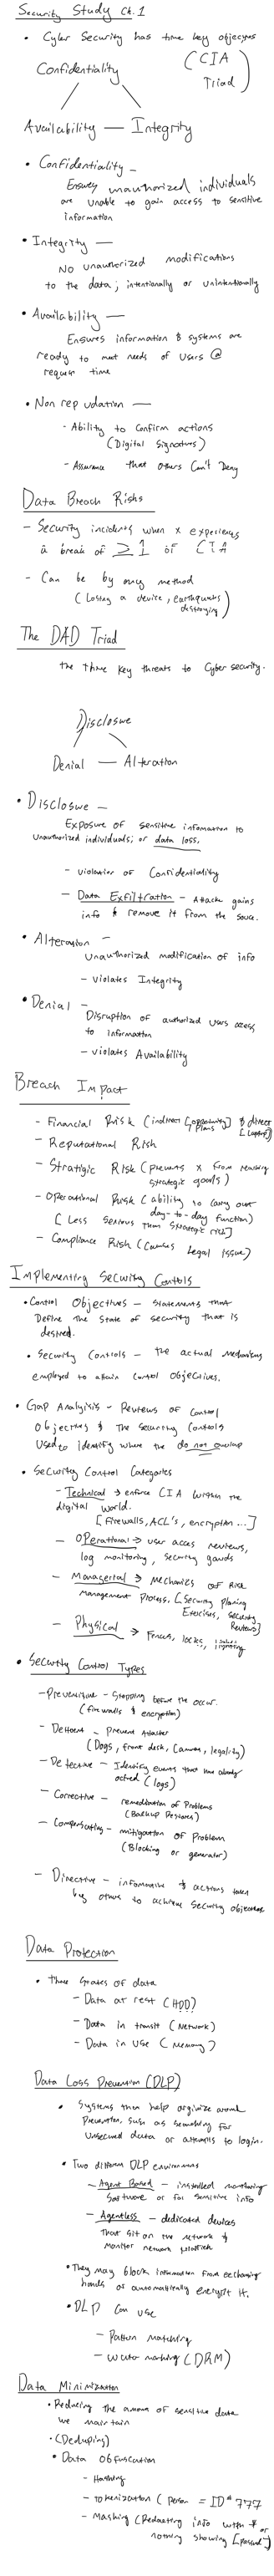 Security Study Ch. 1
• Cyber Security has three key objectives
(CIA
Triad)
Confidentiality
Availability — Integrity
• Confidentiality —
Ensures unauthorized individuals
are unable to gain access to sensitive
information
• Integrity —
No unauthorized modifications
to the data; intentionally or unintentionally
• Availability —
Ensures information & systems are
ready to meet needs of users @
request time
• Non repudation —
- Ability to confirm actions
(Digital Signatures)
- Assurance that others Can't Deny
Data Breach Risks
- Security incidents when x experiences
a break of ≥ 1 of CIA
- Can be by any method
(Losing a device, earthquakes
destroying)
The DAD Triad
the three key threats to Cyber security.
Disclosure
Denial — Alteration
• Disclosure —
Exposure of sensitive information to
unauthorized individuals; or data loss.
- violation of Confidentiality
- Data Exfiltration - Attack gains
info & remove it from the source.
• Alteration —
Unauthorized modification of info
- violates Integrity
• Denial -
Disruption of authorized users access
to information
- violates Availability
Breach Impact
- Financial Risk (indirect [opportunity plans] & direct [laptop])
- Reputational Risk
- Stratigic Risk (prevents x from reaching
strategic goals)
- Operational Risk (ability to carry out
day-to-day function)
[Less serious than strategic risk]
- Compliance Risk (Causes Legal issue)
Implementing Security Controls
• Control Objectives - Statements that
Define the state of security that is
desired.
• Security Controls - the actual mechanisms
employed to attain control objectives.
• Gap Analysis - Reviews of control
objectives & the security controls
used to identify where the do not overlap
• Security Control Categories
- Technical → enforce CIA within the
digital world.
[Firewalls, ACL's, encryption ...]
- Operational → user access reviews,
log monitoring, security gaurds
- Managerial → Mechanics of Risk
Management process. [Security planing
Exercises, Security
Reviews]
- Physical → Fences, locks, lighting
• Security Control Types
- Preventitive - Stopping before the occur.
(firewalls & encryption)
- Deterent - Prevent Attacker
(Dogs, front desk, Cameras, legality)
- Detective - Identify events that have already
(logs)
- Corrective - remediation of Problems
(Backup Restores)
- Compensating - mitigation of Problem
(Blocking or generator)
- Directive - informative & actions taken
by others to achieve security objectives
Data Protection
• Three States of data
- Data at rest (HDD)
- Data in transit (Network)
- Data in use (Memory)
Data Loss Prevention (DLP)
• Systems that help orginize around
Prevention, such as searching for
Unsecured data or attempts to login.
• Two different DLP environments
- Agent Based - installed monitoring
software for sensitive info
- Agentless - dedicated devices
that sit on the network &
Monitor network
• They may block information from
hands or automatically encrypt it.
• DLP Can use
- Pattern matching
- Water marking (DRM)
Data Minimization
• Reducing the amount of sensitive data
we maintain
• (Deduping)
• Data Obfuscation
- Hashing
- tokenization (person = ID# 777
- Masking (Redacting info with * or
nothing showing